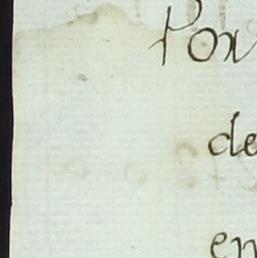 Por
de
en